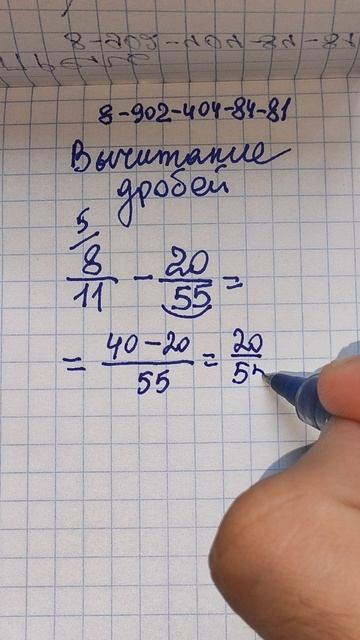 8-902-404-84-81
Вычитание
дробей
5/
8/11 - 20/55 =
= 40-20/55 = 20/55